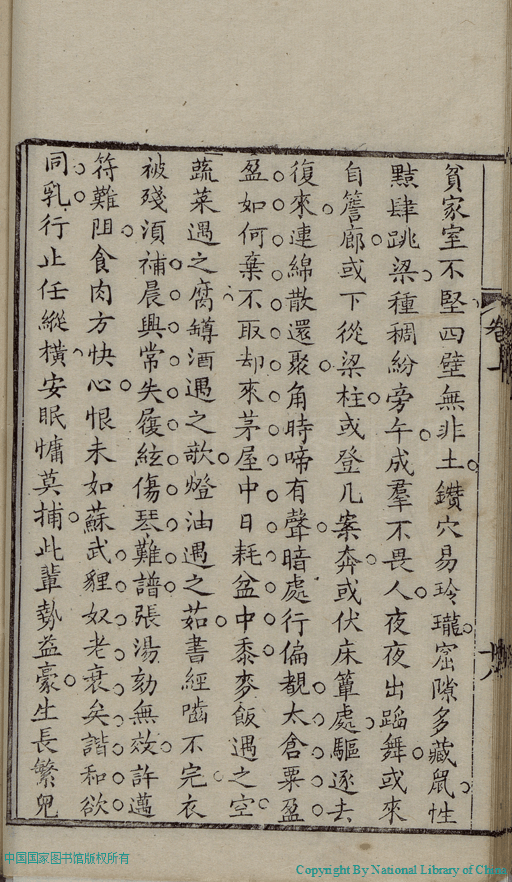 貧家室不堅四壁無非土鑽穴易玲瓏窟隙多藏鼠性
黠肆跳梁種稠紛旁午成羣不畏人夜夜出蹈舞或來
自簷廊或下從梁柱或登几案奔或伏床簞處驅逐去
復來連綿散還聚角時啼有聲暗處行偏覩太倉粟盈
盈如何棄不取却來茅屋中日耗盆中黍麥飯遇之空
蔬菜遇之腐罇酒遇之歌燈油遇之茹書經嚙不完衣
被殘湏補晨興常失履絃傷琴難譜張湯劾無效許邁
符難阻食肉方快心恨未如蘇武貍奴老衰矣諧和欲
同乳行止任縱橫安眠慵莫捕此輩勢益豪生長繁兒
卷上
中国国家图书馆版权所有
Copyright By National Library of China